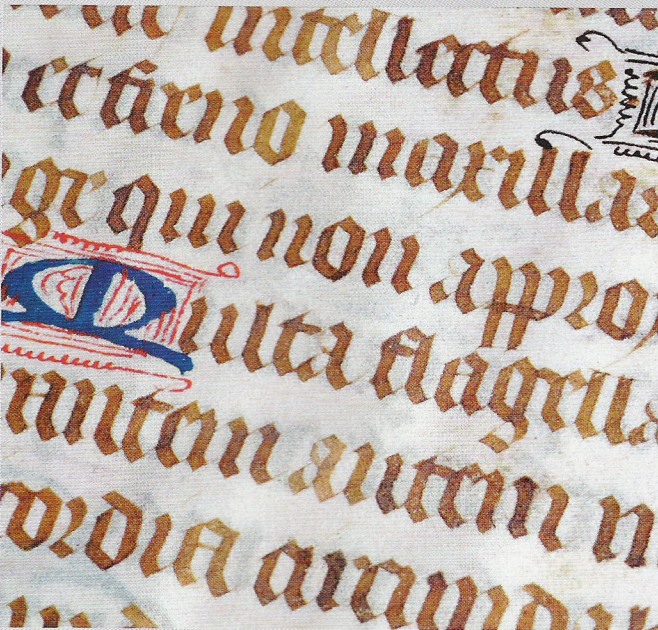 intellectus
et freno maxillas
ge qui non approx
Multa flagella
rantem autem in
cordia circumda